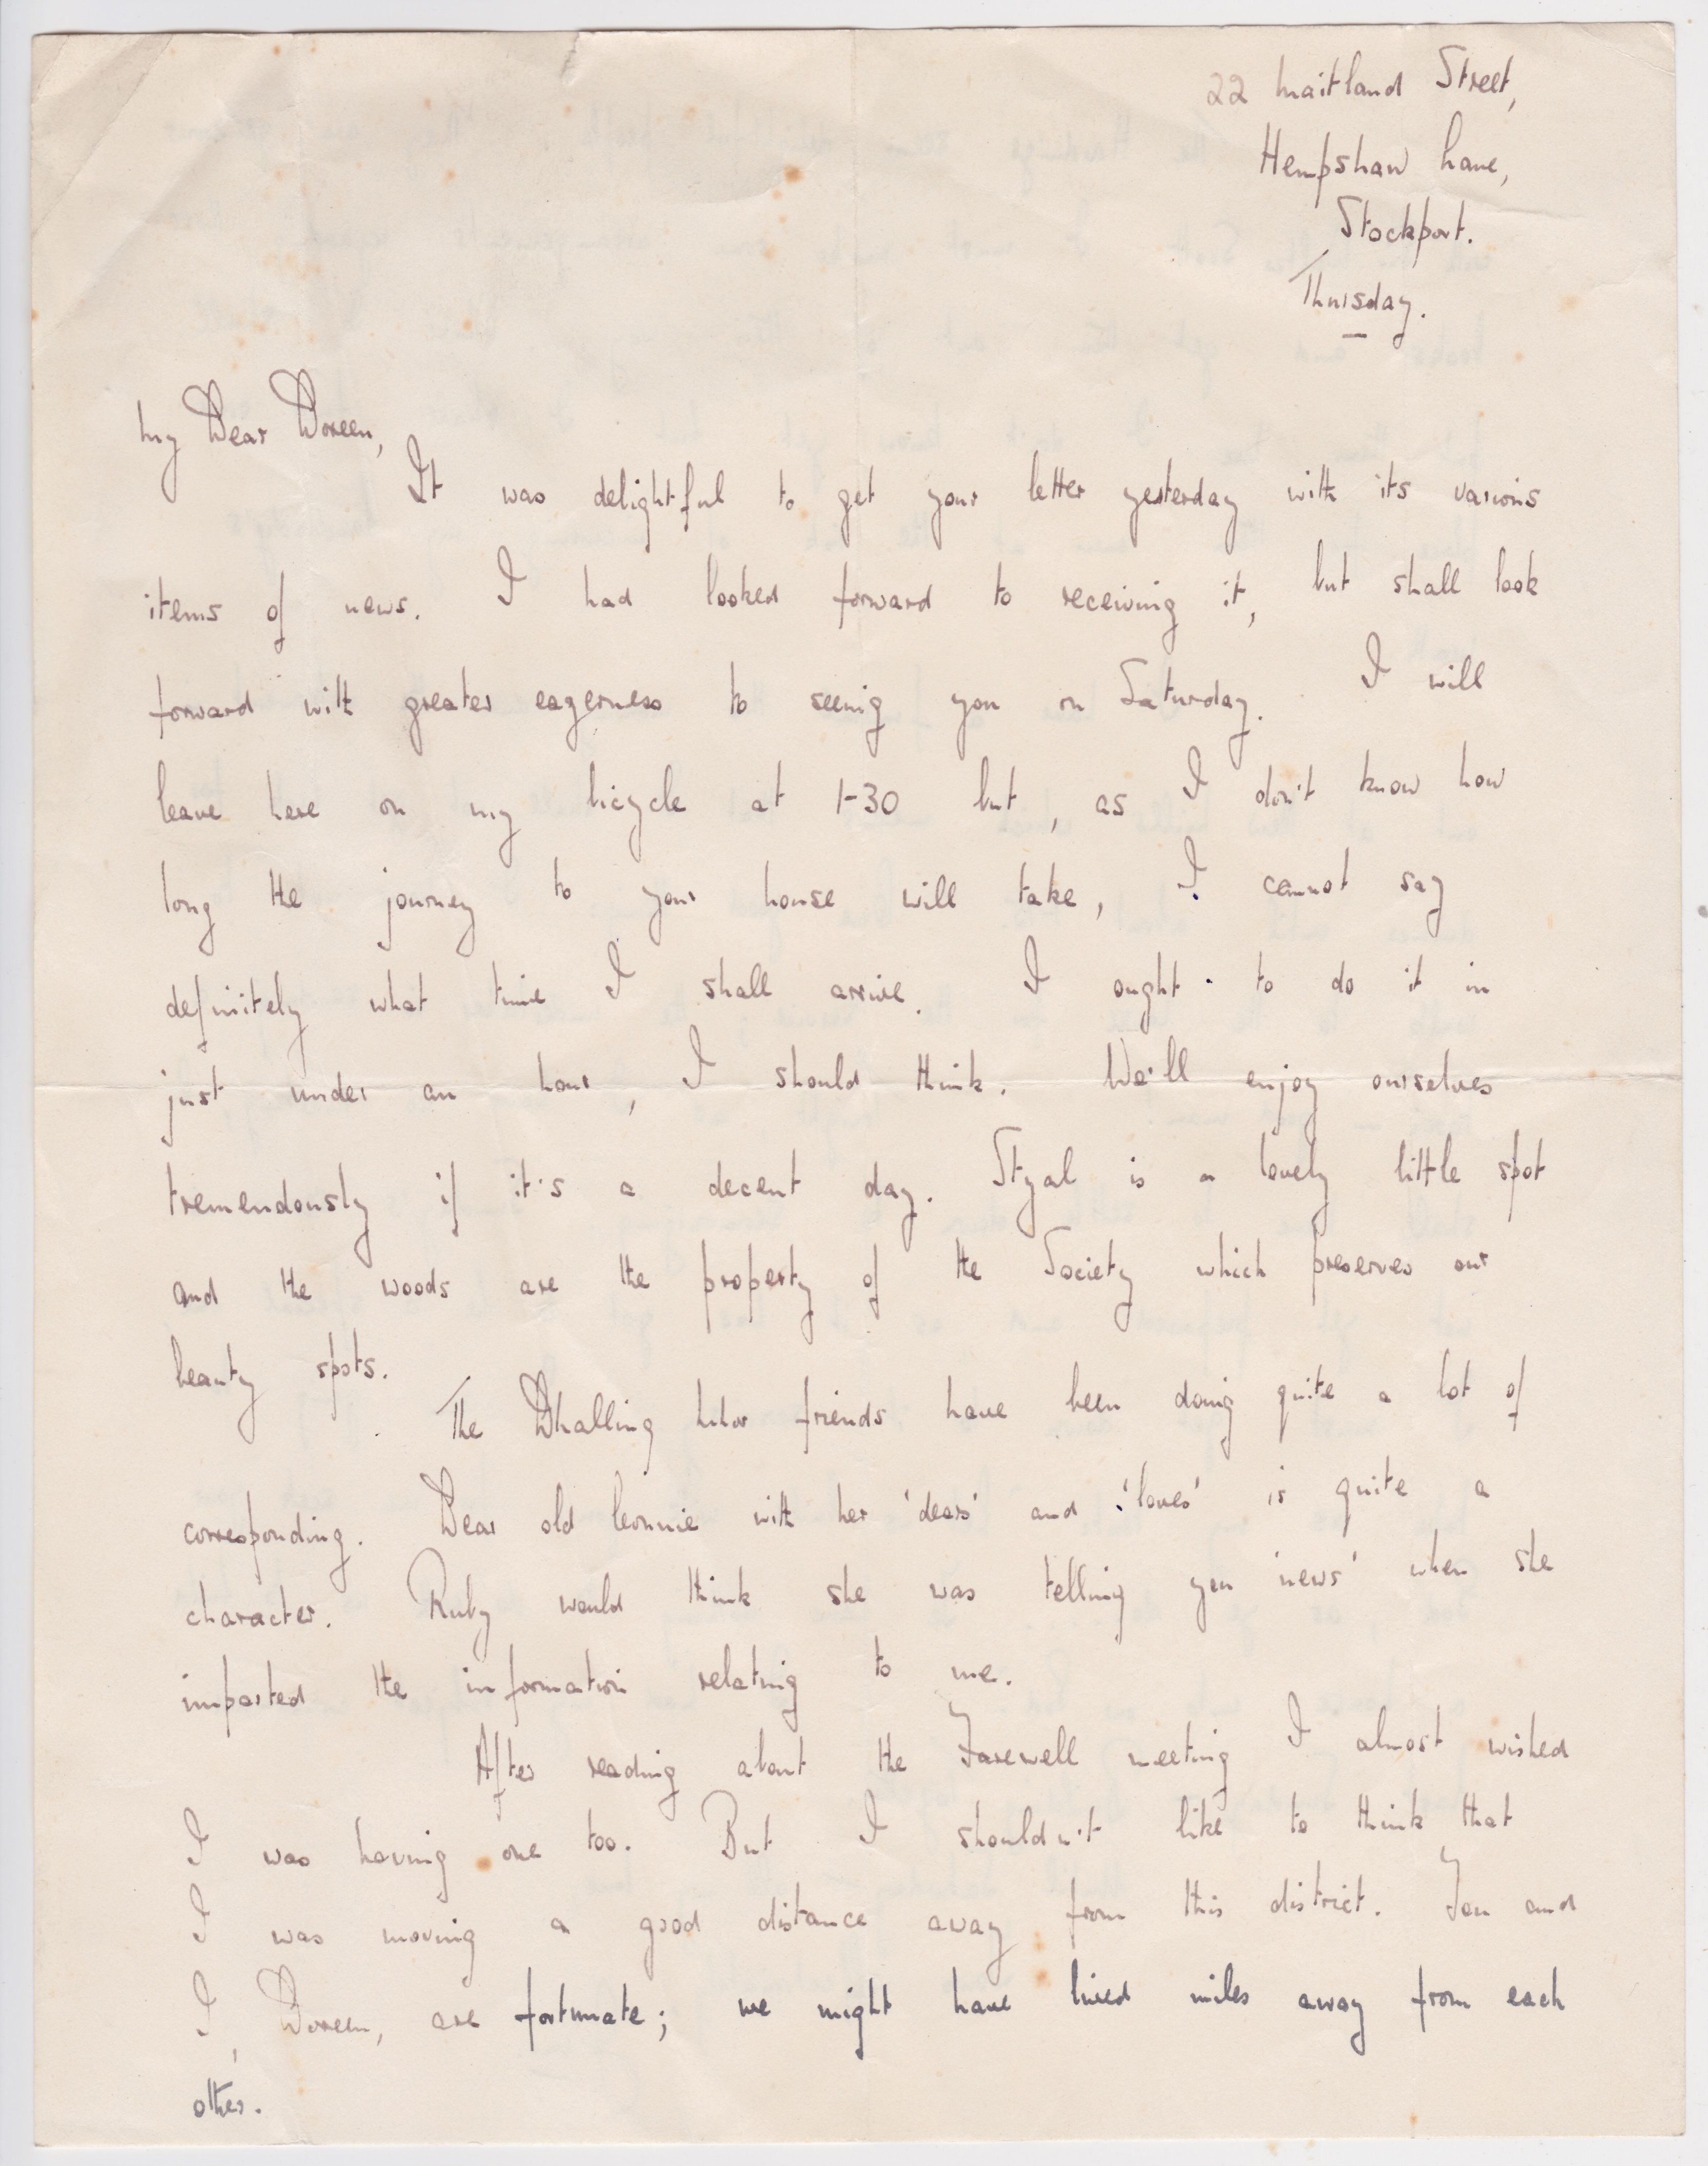 22 Maitland Street,
Hempshaw Lane,
Stockport.
Thursday.
My Dear Doreen,
It was delightful to get your letter yesterday with its various
items of news. I had looked forward to receiving it, but shall look
forward with greater eagerness to seeing you on Saturday. I will
leave here on my bicycle at 1-30 but, as I don't know how
long the journey to your house will take, I cannot say
definitely what time I shall arrive. I ought to do it in
just under an hour, I should think. We'll enjoy ourselves
tremendously if it's a decent day. Styal is a lovely little spot
and the woods are the property of the Society which preserves our
beauty spots.
The friends have been doing quite a lot of
corresponding. Dear old Connie with her 'dears' and 'loves' is quite a
character. Ruby would think she was telling you 'news' when she
imparted the information relating to me.
After reading about the Farewell meeting I almost wished
I was having one too. But I shouldn't like to think that
I was moving a good distance away from this district. You and
I, Doreen, are fortunate; we might have lived miles away from each
other.